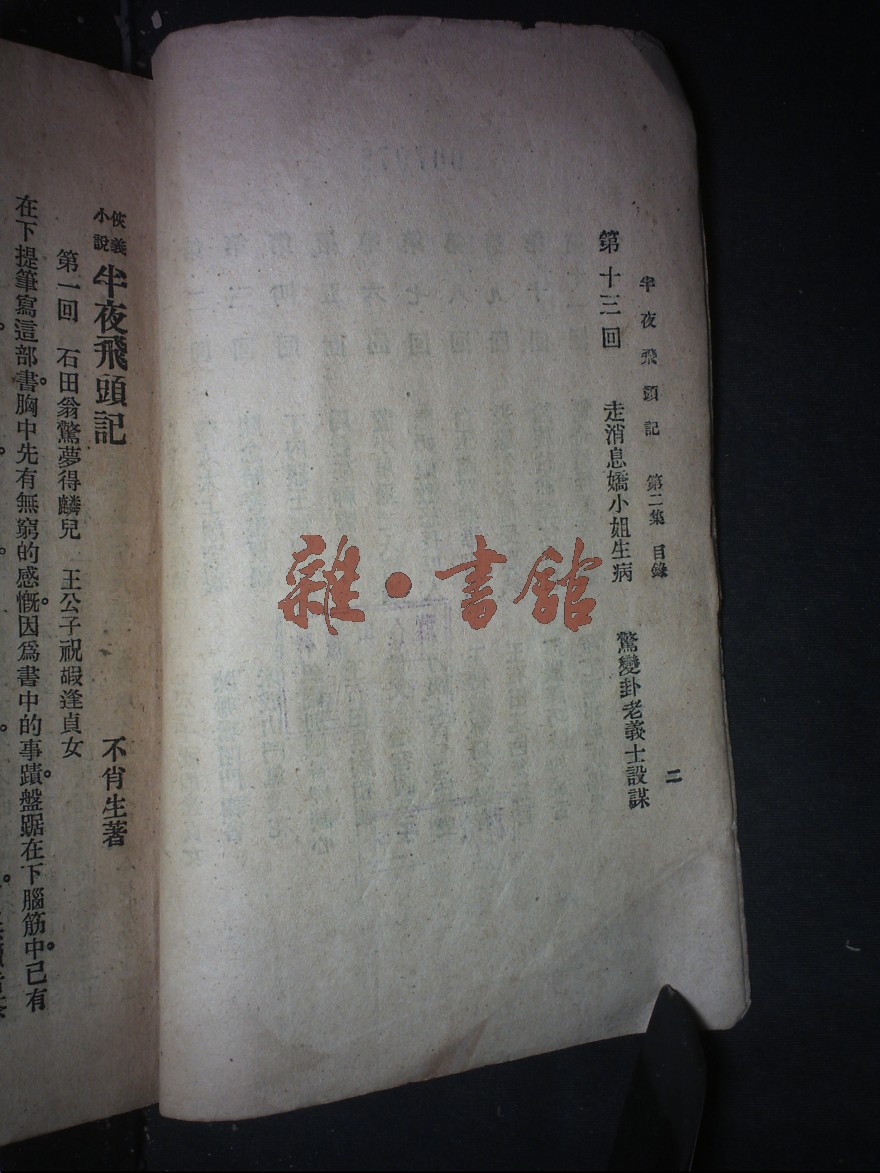 半夜飛頭記 第二集 目錄 二
第十三回 走消息嬌小姐生病 驚變卦老義士設謀
雜·書館
俠義小說 半夜飛頭記 不肖生著
第一回 石田翁驚夢得麟兒 王公子祝嘏逢貞女
在下提筆寫這部書。胸中先有無窮的感慨。因爲書中的事蹟。盤踞在下腦筋中。已有